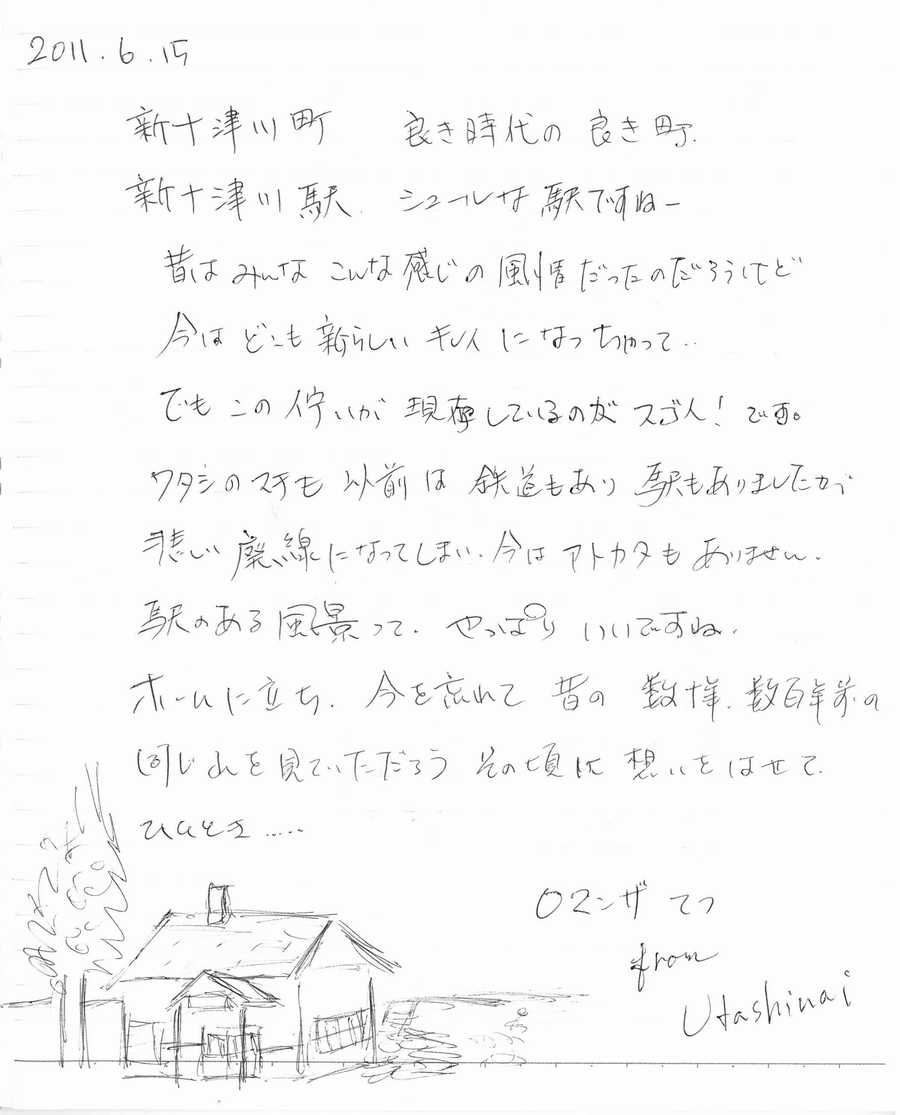 2011.6.15
新十津川町 良き時代の良き町.
新十津川駅. シュールな駅ですねー
昔はみんなこんな感じの風情だったのだろうけど
今はどこも新らしいキレイになっちゃって..
でもこの佇いが現存しているのがスゴイ!です。
ワタシのマチも以前は鉄道もあり駅もありましたが
悲しい廃線になってしまい.今はアトカタもありません.
駅のある風景って.やっぱりいいですね.
ホームに立ち.今を忘れて昔の数十年.数百年前の
同じ山を見ていただろうその頃に想いをはせて.
ひととき.....
ロマンザ てつ
from
Utashinai